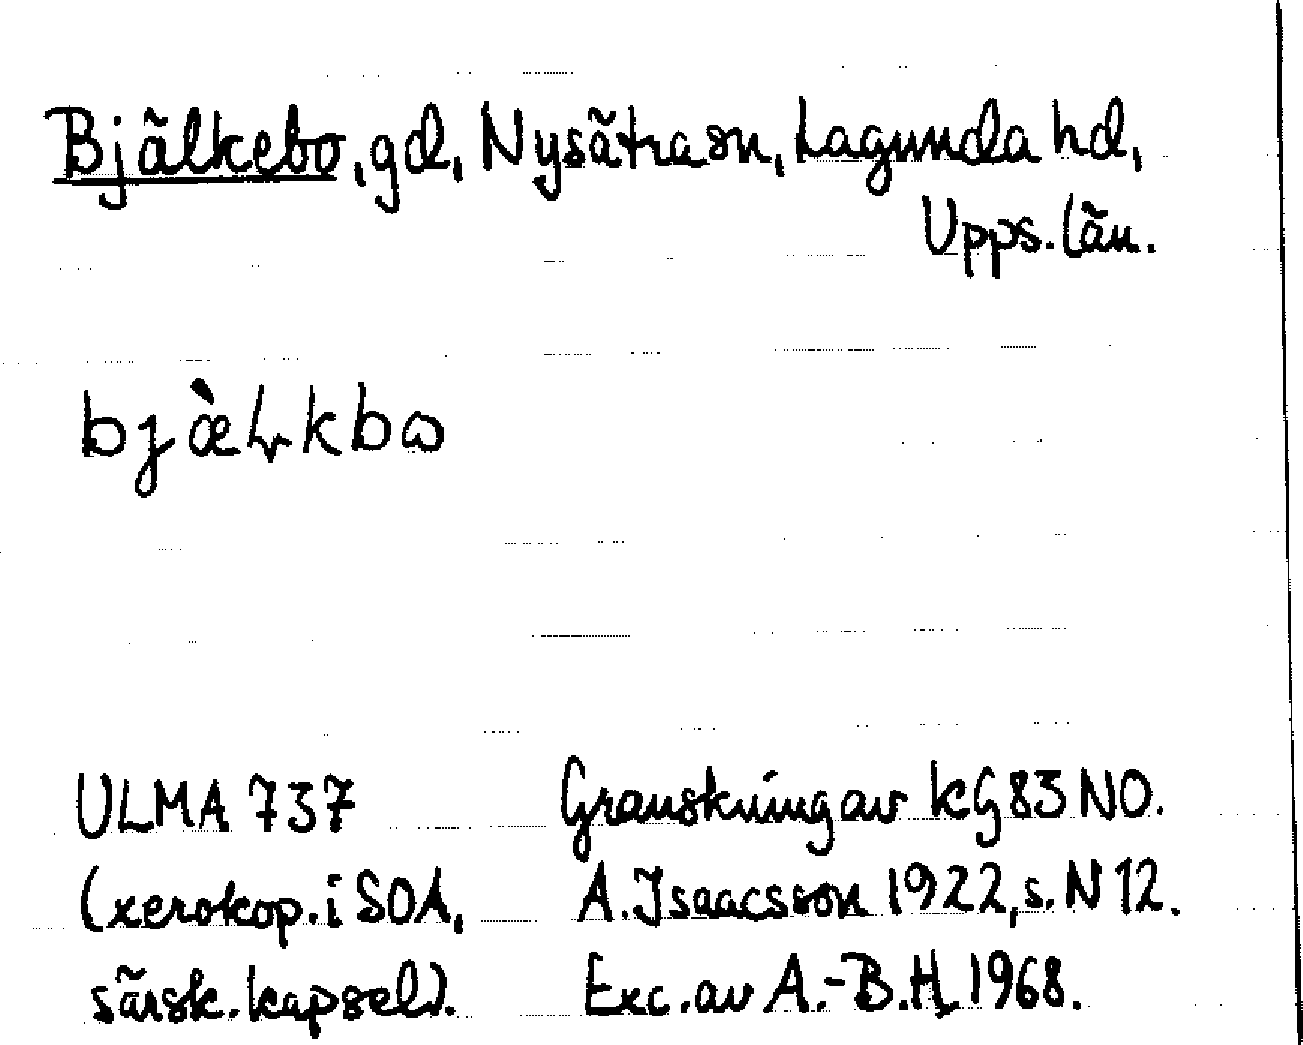 Bjälkebo, gd, Nysätra sn, Lagunda hd,
Upps. län.
bjæ̀ɫkbɷ
ULMA 737
(xerokop. i SOA,
särsk. kapsel).
Granskning av kG 83 NO.
A. Isaacsson 1922, s. N 12.
Exc. av A.-B. H. 1968.